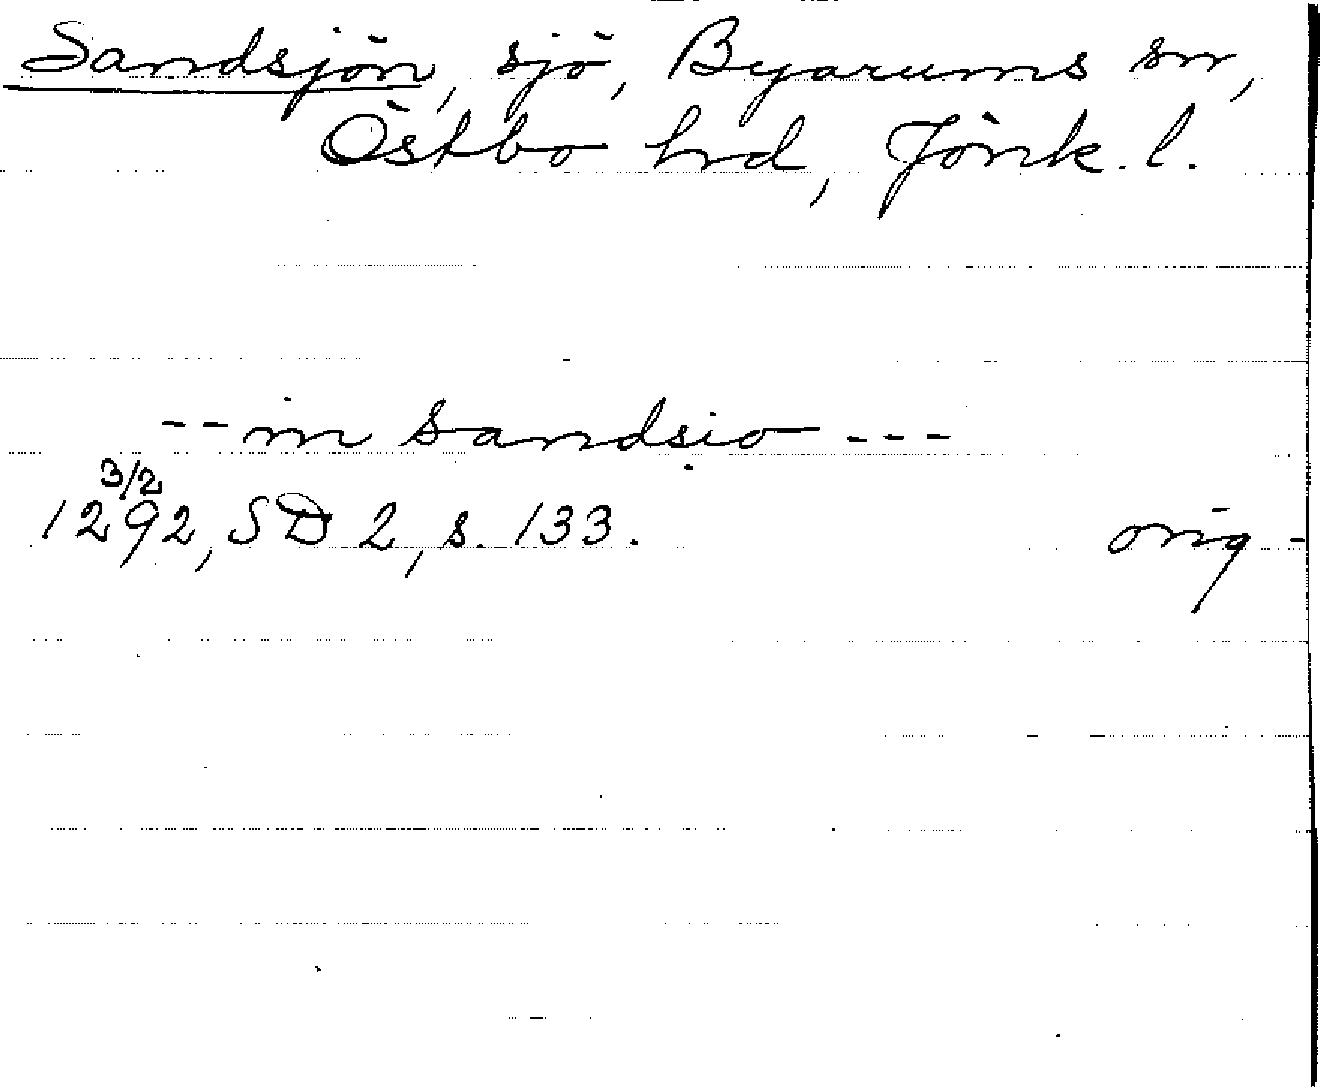 Sandsjön, sjö, Byarums sn,
Östbo hrd, Jönk. l.
-- in Sandsio ---
3/2
1292, SD 2, s. 133. orig -